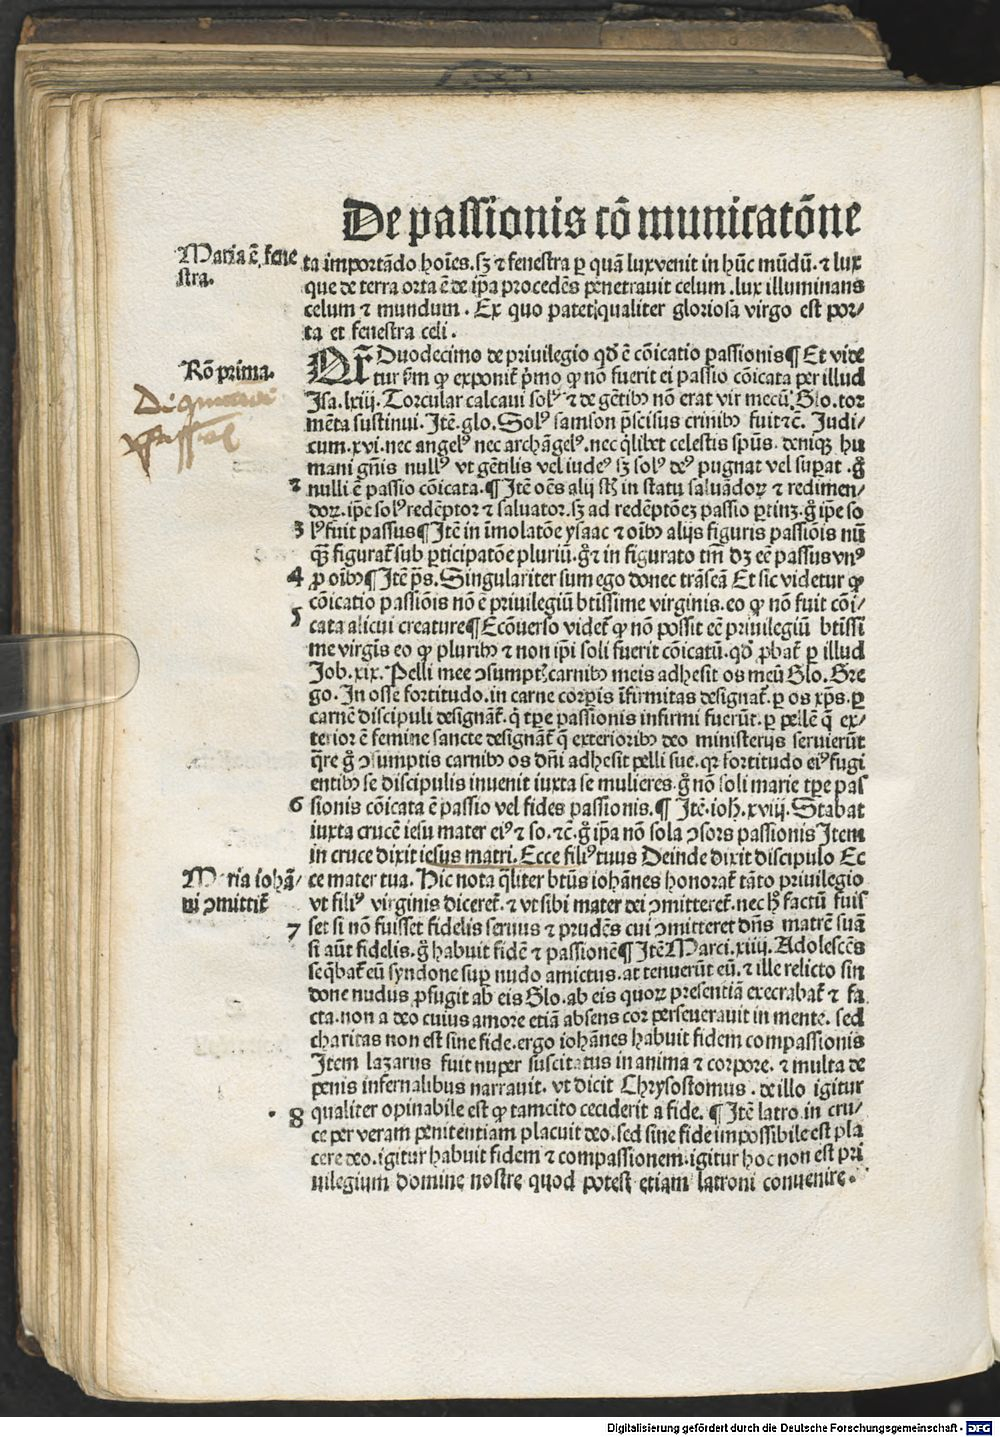 De passionis cō municatōne
Maria ē fene
stra.
ta importādo hoīes. sꝫ ⁊ fenestra ꝑ quā lux venit in hūc mūdū. ⁊ lux
que de terra orta ē de ip̄a procedēs penetravit celum. lux illuminans
celum ⁊ mundum. Ex quo patet qualiter gloriosa virgo est por/
ta et fenestra celi.
Rō prima.
Duodecimo de privilegio qd̄ ē cōicatio passionis ¶ Et vide
tur ꝙ exponit̄ p̄mo ꝙ nō fuerit ei passio cōicata per illud
Isa. lxiij. Torcular calcavi solꝰ ⁊ de gētibꝰ nō erat vir mecū. Glo. tor
mēta sustinui. Itē. glo. Solꝰ samson p̄scisus crinibꝰ fuit ⁊c. Judi/
cum. xvi. nec angelꝰ nec archāgelꝰ. nec q̄libet celestis sp̄us. deniqꝫ hu
mani gn̄is nullꝰ vt gētilis vel iudeꝰ sꝫ solꝰ deꝰ pugnat vel suꝑat. g̊
2
nulli ē passio cōicata. ¶ Itē oēs alij st̄ in statu salvādoꝝ ⁊ redimen/
doꝝ. ip̄e solꝰ redēptor ⁊ salvator. sꝫ ad redēptōeꝫ passio ꝑtinꝫ. g̊ ip̄e so
3
lꝰ fuit passus ¶ Itē in īmolatōe ysaac ⁊ oībꝰ alijs figuris passiōis nū
qꝫ figurat̄ sub ꝑticipatōe pluriū. g̊ ⁊ in figurato tm̄ dꝫ eē passus vnꝰ
4
ꝓ oībꝰ ¶ Itē p̄s. Singulariter sum ego donec trāseā Et sic videtur ꝙ
cōicatio passiōis nō ē privilegiū btīssime virginis. eo ꝙ nō fuit cōi/
5
cata alicui creature ¶ Ecōverso videt̄ ꝙ nō possit eē privilegiū btīssi
me virgīs eo ꝙ pluribꝰ ⁊ non ip̄i soli fuerit cōicatū. qd̄ ꝓbat̄ ꝑ illud
Job. xix. Pelli mee ɔsumptꝭ carnibꝰ meis adhesit os meū Glo. Gre
go. In osse fortitudo. in carne corꝑis īfirmitas designat̄. ꝑ os xp̄s. ꝑ
carnē discipuli designāt̄. q̇ tꝑe passiōis infirmi fuerūt. ꝑ pellē q̄ ex/
terior ē femine sancte designāt̄ q̄ exterioribꝰ deo ministerijs servierūt
q̄re g̊ ɔsumptis carnibꝰ os dn̄i adhesit pelli sue. qꝛ fortitudo eiꝰ fugi
entibꝰ se discipulis invenit iuxta se mulieres. g̊ nō soli marie tꝑe pas
6
sionis cōicata ē passio vel fides passionis. ¶ Itē. ioh. xviij. Stabat
iuxta crucē iesu mater eiꝰ ⁊ so. ⁊c. g̊ ip̄a nō sola ɔsors passionis Item
in cruce dixit iesus matri. Ecce filiꝰ tuus Deinde dixit discipulo Ec
Maria iohā/
ni ɔmittit̄
ce mater tua. Hic nota q̄liter btūs iohānes honorat̄ tāto privilegio
vt filiꝰ virginis diceret̄. ⁊ vt sibi mater dei ɔmitteret̄. nec hꝰ factū fuis
7
set si nō fuisset fidelis servus ⁊ prudēs cui ɔmitteret dn̄s matrē suā
si aūt fidelis. g̊ habuit fidē ⁊ passionē ¶ Itē Marci. xiiij. Adolescēs
seq̄bat̄ eū syndone suꝑ nudo amictus. at tenuerūt eū. ⁊ ille relicto sin
done nudus ꝓfugit ab eis Glo. ab eis quoꝝ presentiā execrabat̄ ⁊ fa
cta. non a deo cuius amore etiā absens cor perseveravit in mente. sed
charitas non est sine fide. ergo iohānes habuit fidem compassionis
Item lazarus fuit nuper suscitatus in anima ⁊ corpore. ⁊ multa de
penis infernalibus narravit. vt dicit Chrysostomus. de illo igitur
8
qualiter opinabile est ꝙ tamcito ceciderit a fide. ¶ Itē latro in cru/
ce per veram penitentiam placuit deo. sed sine fide impossibile est pla
cere deo. igitur habuit fidem ⁊ compassionem. igitur hoc non est pri
uilegium domine nostre quod potest etiam latroni convenire.
Digitalisierung gefördert durch die Deutsche Forschungsgemeinschaft - DFG